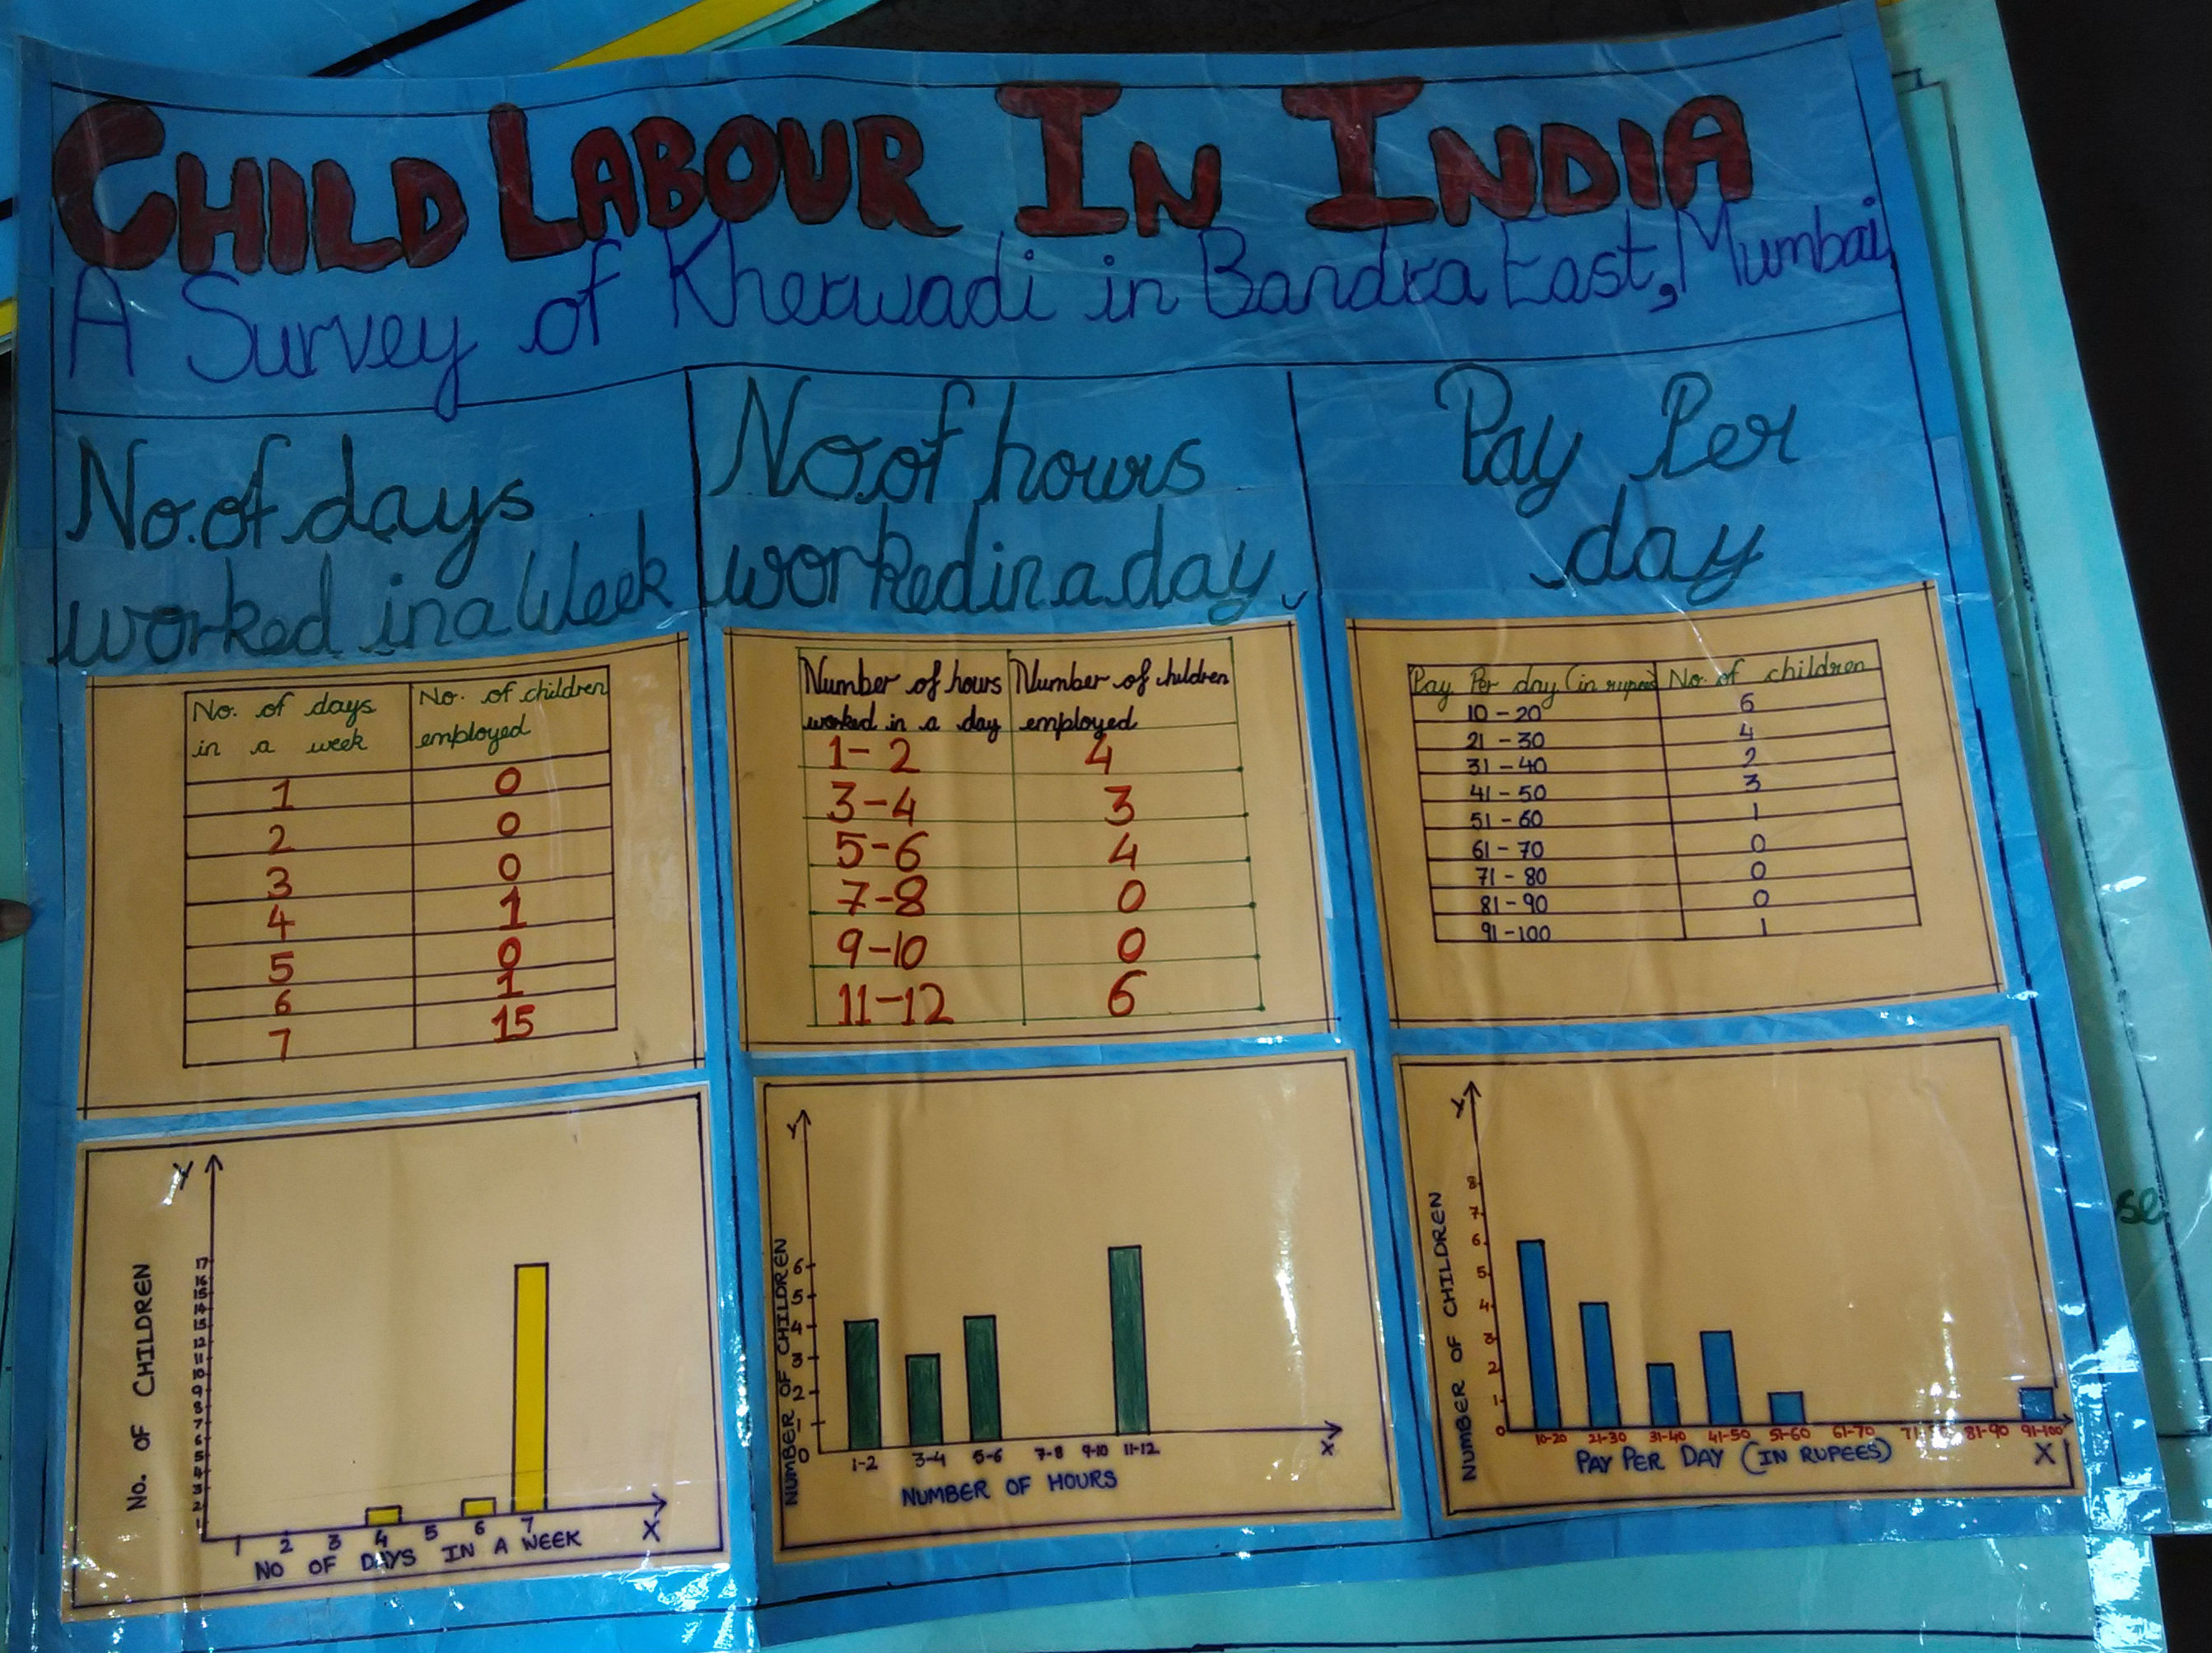 CHILD LABOUR IN INDIA
A Survey of Kherwadi in Bandra East, Mumbai
No. of days
worked in a Week
No. of days in a week No. of children employed
1 0
2 0
3 0
4 1
5 0
6 1
7 15
Y
NO. OF CHILDREN
17
16
15
14
13
12
11
10
9
8
7
6
5
4
3
2
1
1 2 3 4 5 6 7
X
NO OF DAYS IN A WEEK
No. of hours
worked in a day
Number of hours worked in a day Number of children employed
1-2 4
3-4 3
5-6 4
7-8 0
9-10 0
11-12 6
Y
NUMBER OF CHILDREN
6
5
4
3
2
1
0
1-2 3-4 5-6 7-8 9-10 11-12
X
NUMBER OF HOURS
Pay Per
day
Pay Per day (in rupees) No. of children
10-20 6
21-30 4
31-40 2
41-50 3
51-60 1
61-70 0
71-80 0
81-90 0
91-100 1
Y
NUMBER OF CHILDREN
8
7
6
5
4
3
2
1
0
10-20 21-30 31-40 41-50 51-60 61-70 81-90 91-100
PAY PER DAY (IN RUPEES) X
se